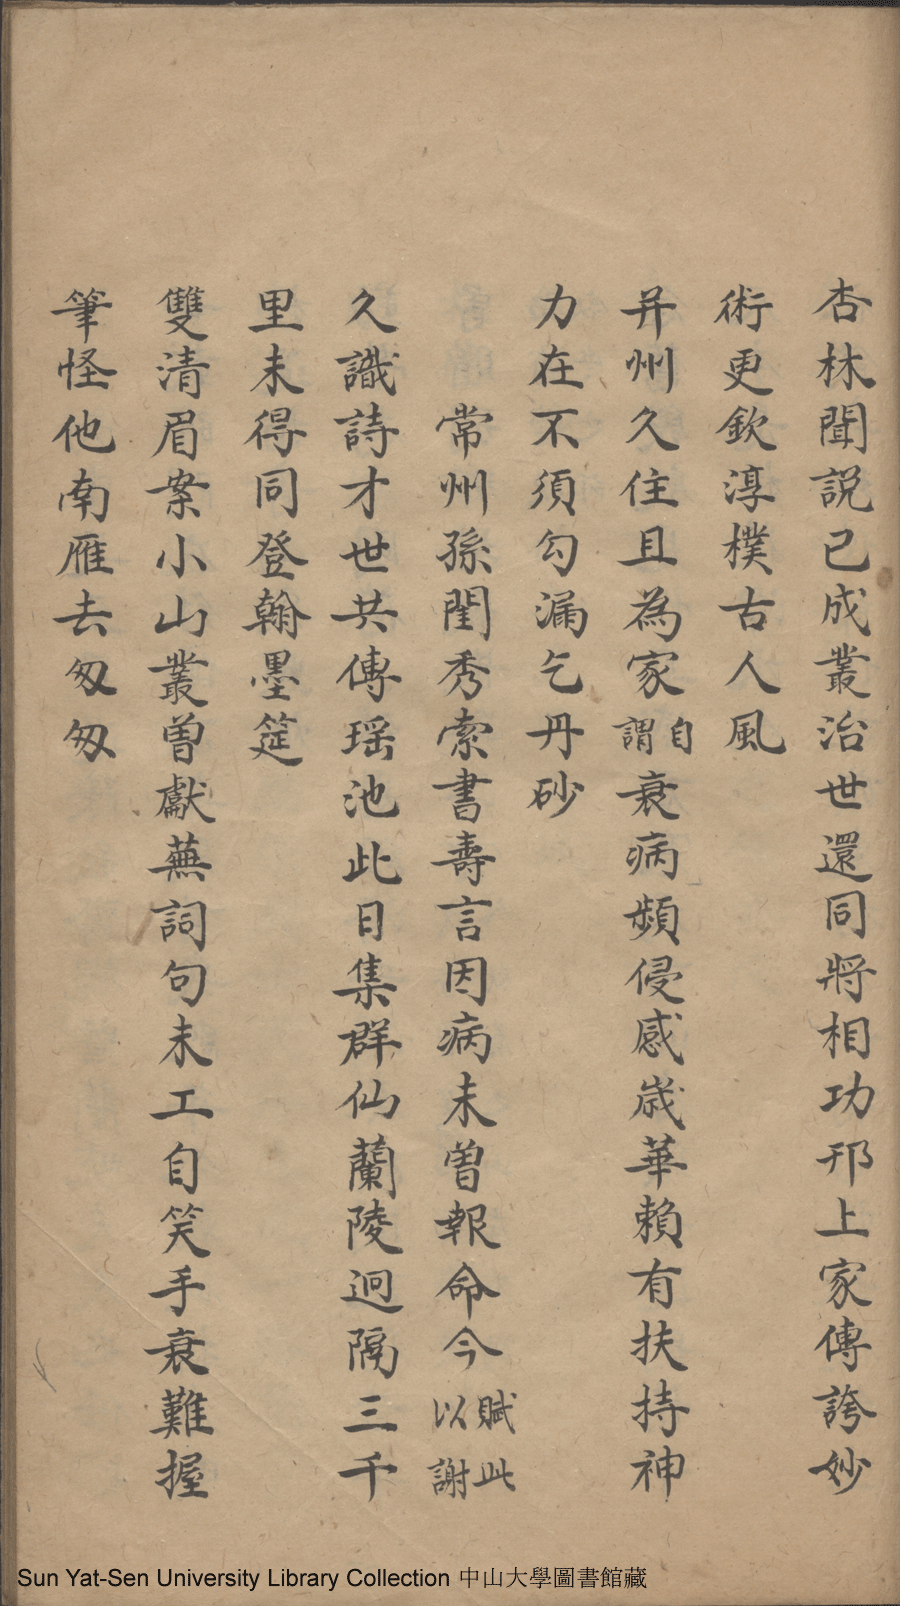 杏林聞説已成叢治世還同將相功邗上家傳誇妙
術更欽淳樸古人風
并州久住且為家自謂衰病頻侵感歲華賴有扶持神
力在不須勾漏乞丹砂
常州孫閨秀索書壽言因病未曾報命今賦此以謝
久識詩才世共傳瑶池此日集群仙蘭陵迥隔三千
里未得同登翰墨筵
雙清眉案小山叢曾獻蕪詞句未工自笑手衰難握
筆怪他南雁去匆匆
Sun Yat-Sen University Library Collection 中山大學圖書館藏